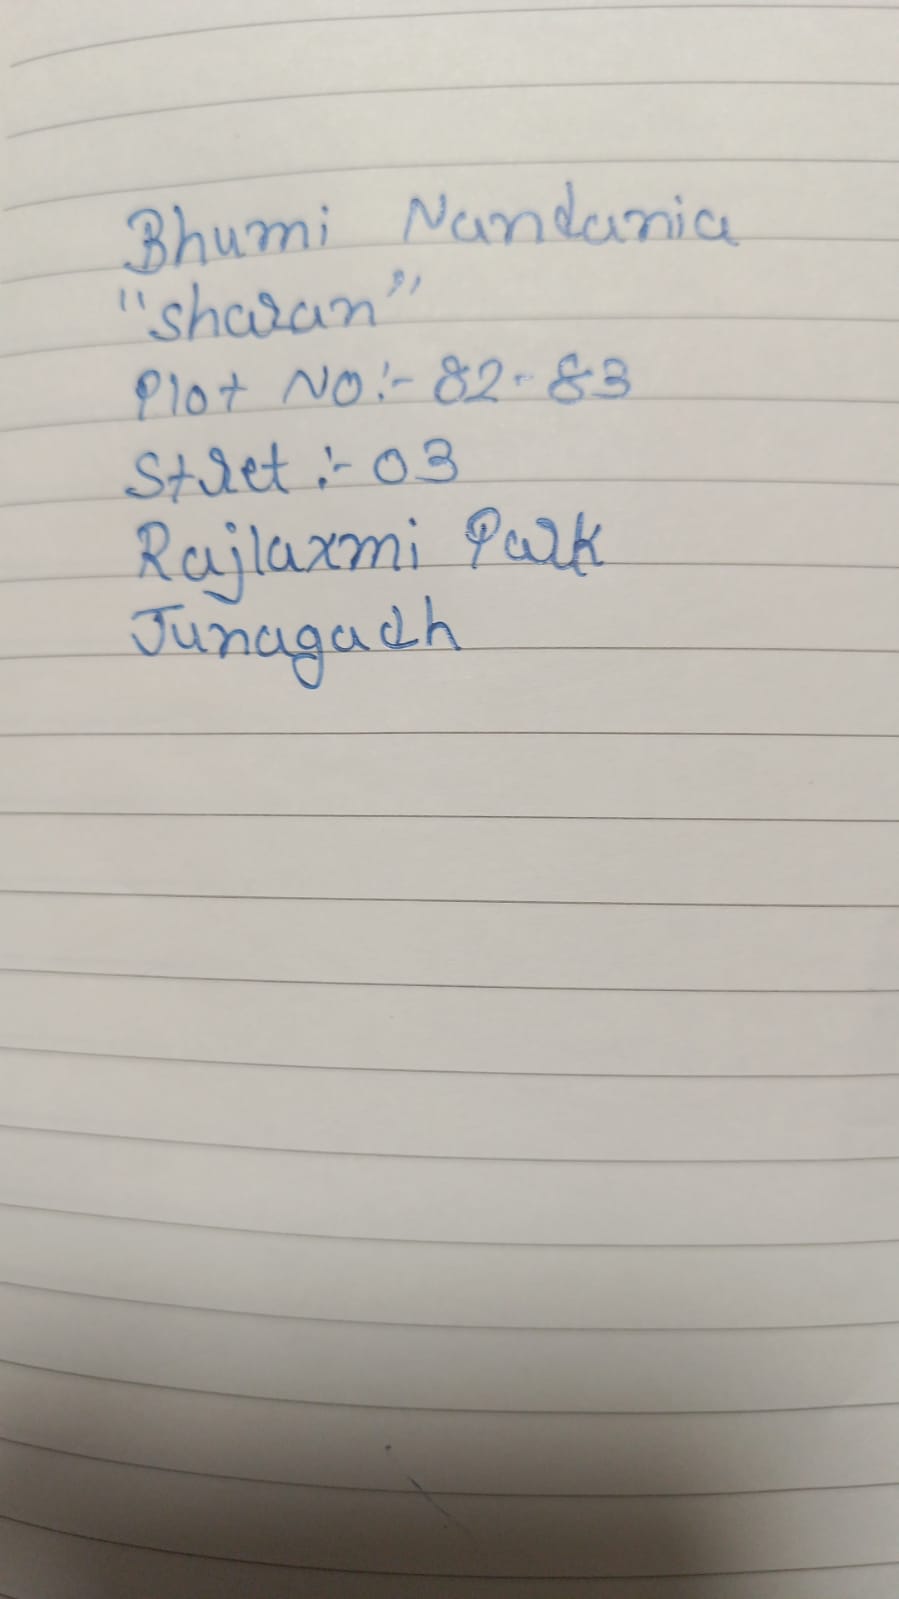 Bhumi Nandania
"sharan"
Plot No:- 82-83
Stret:- 03
Rajlaxmi Park
Junagadh